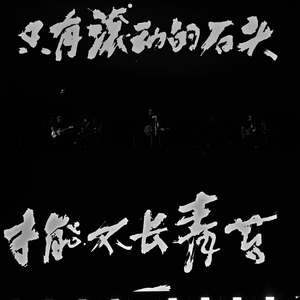 只有滚动的石头
才能不长青苔